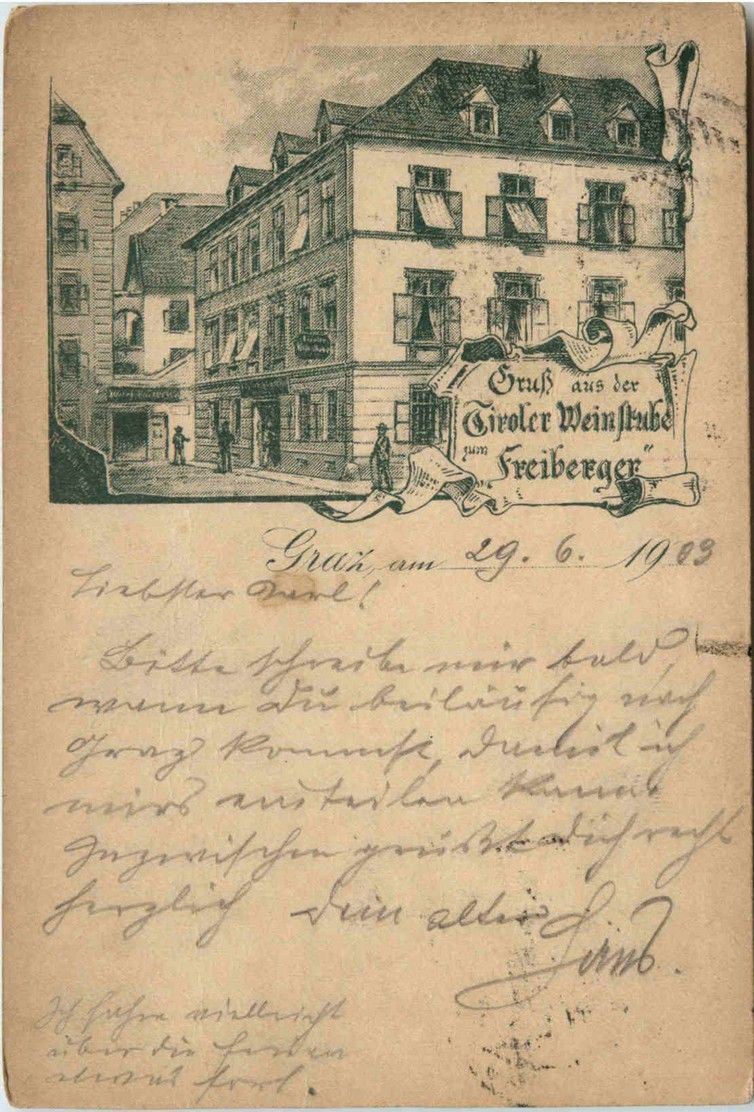 Gruß aus der
Tiroler Weinstube
zum
"Freiberger"
Graz, am 29. 6. 1903
Liebster Karl!
Bitte schreibe mir bald,
wann Du beiläufig nach
Graz kommst, damit ich
mirs einteilen kann.
Inzwischen grüßt Dich recht
herzlich Dein alter
Hans.
Ich fahre vielleicht
über die Ferien
etwas fort.